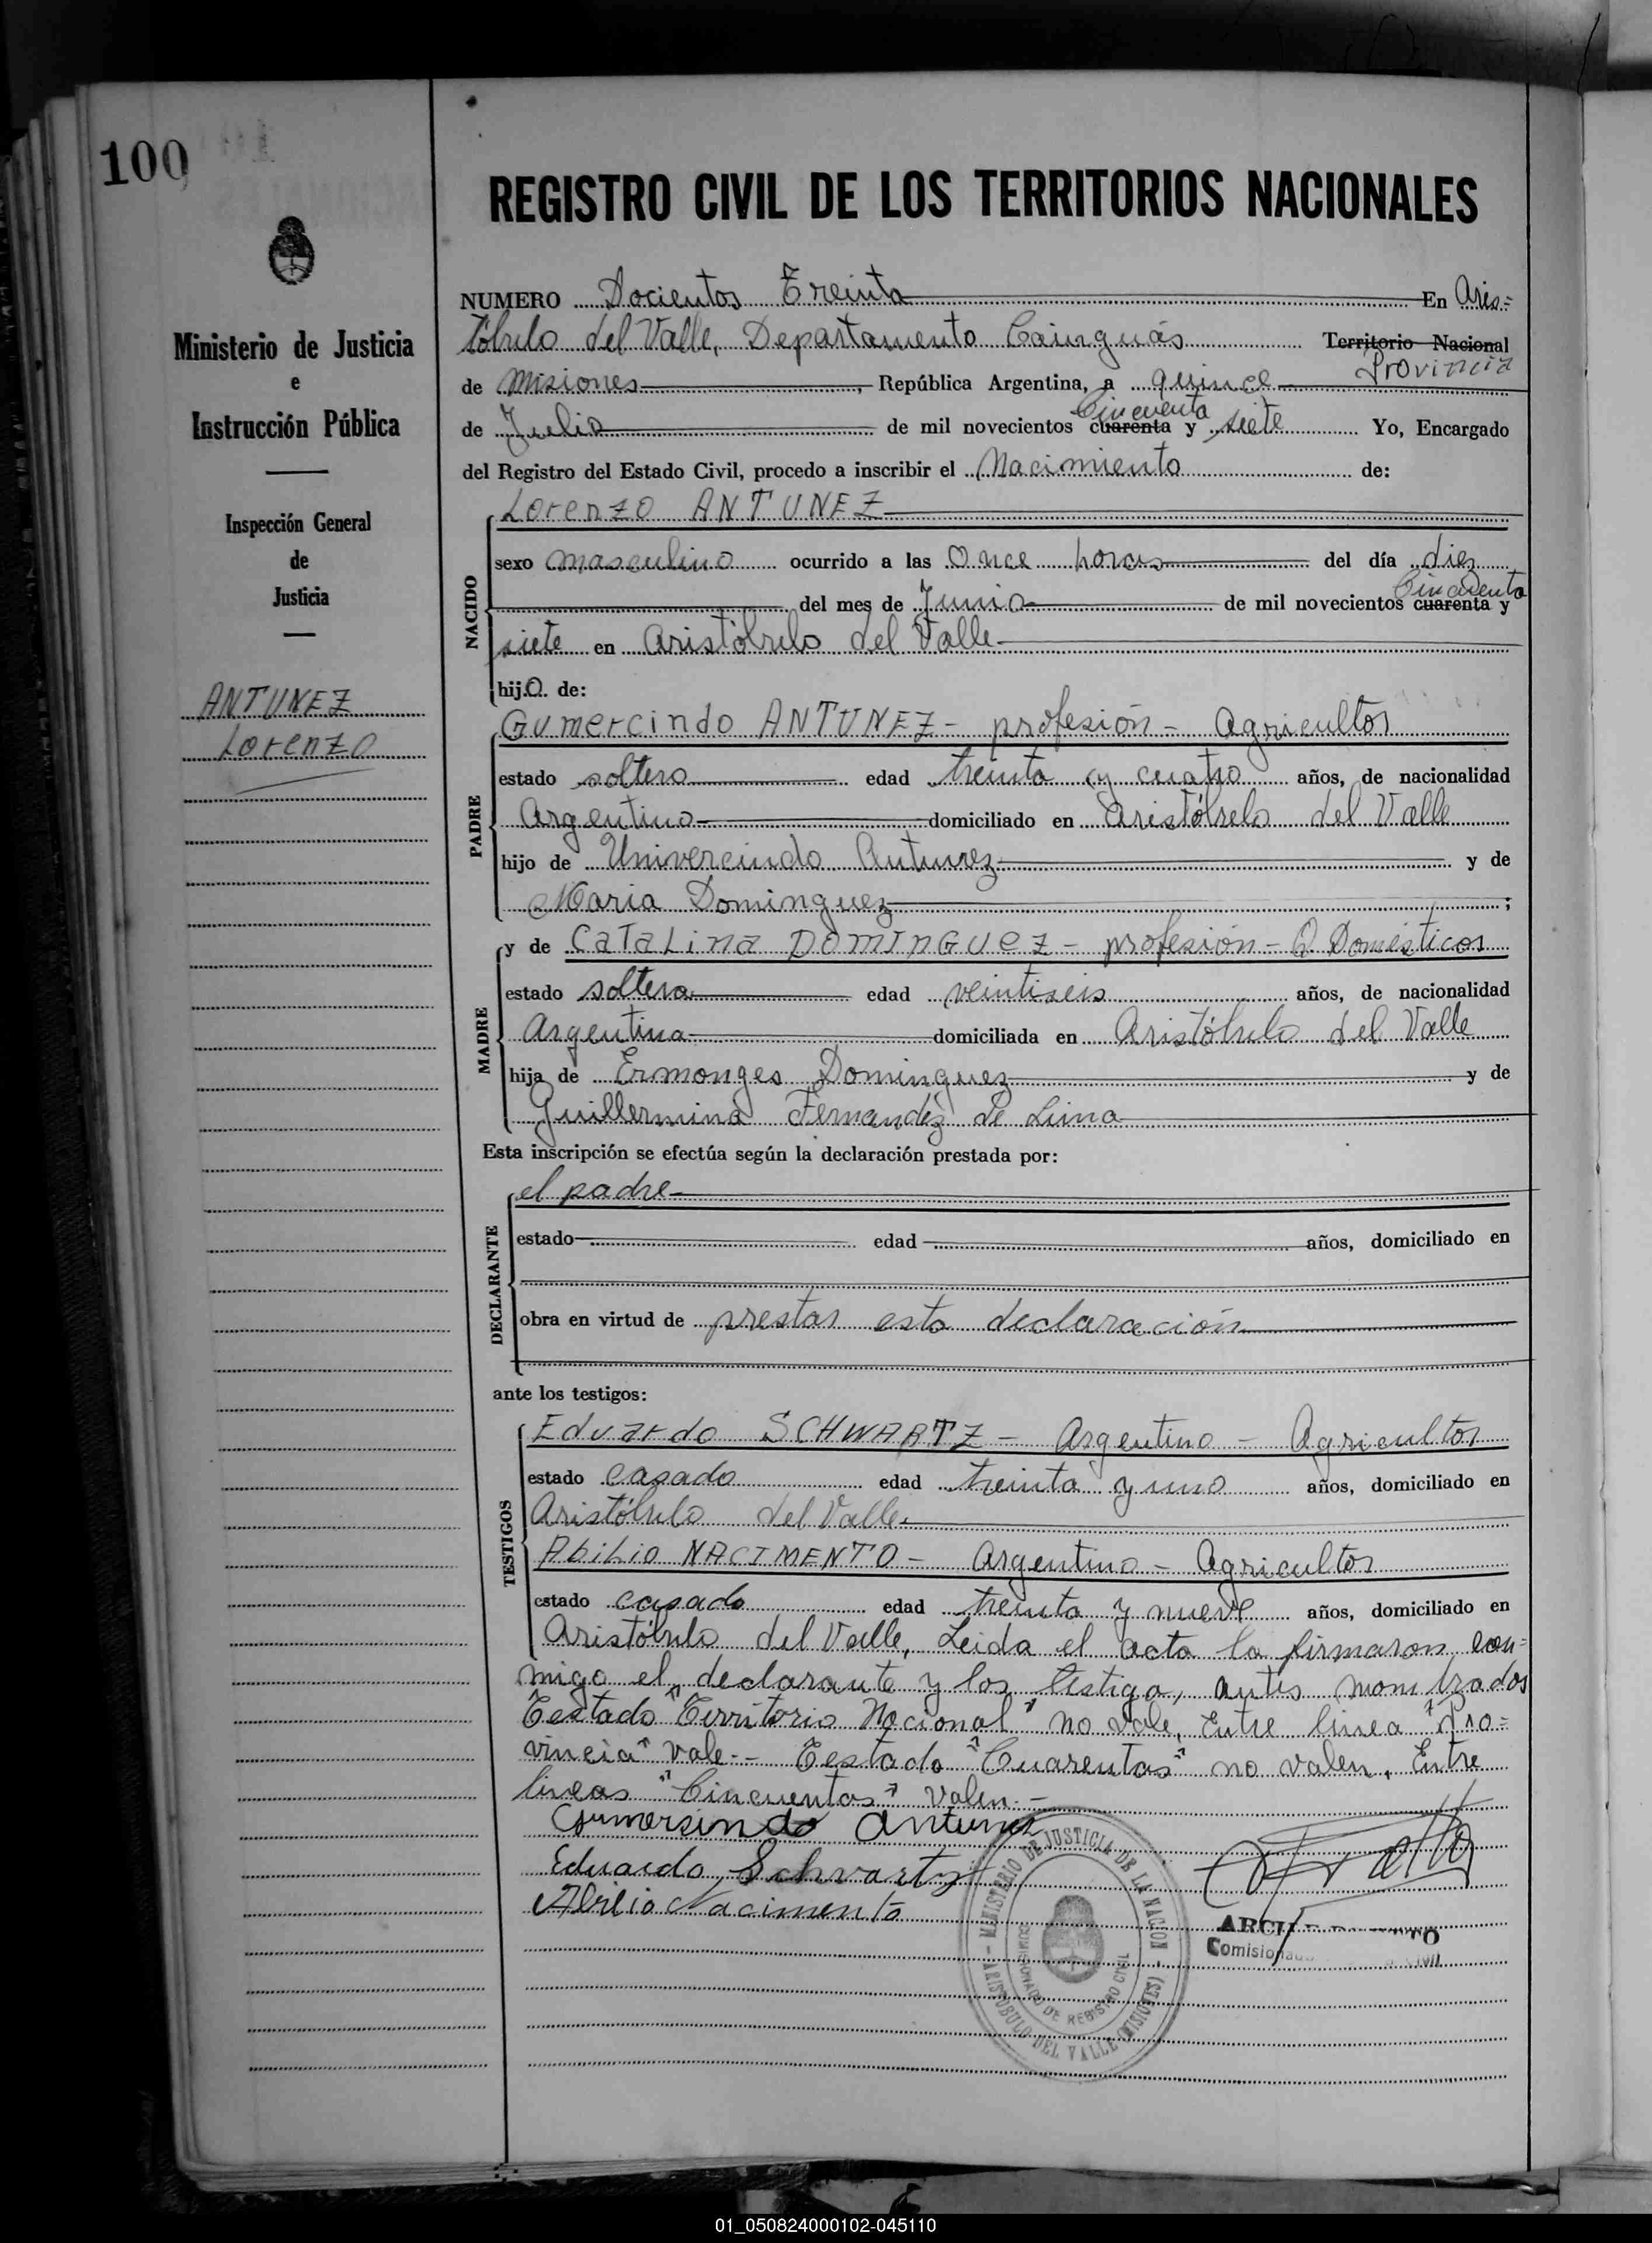 100
REGISTRO CIVIL DE LOS TERRITORIOS NACIONALES
Ministerio de Justicia
e
Instrucción Pública
Inspección General
de
Justicia
ANTUNEZ
Lorenzo
NUMERO Docientos Treinta En Aris=
tóbulo del Valle, Departamento Cainguás Territorio Nacional
Provincia
de Misiones, República Argentina, a quince
Cincuenta
de Julio de mil novecientos cuarenta y siete Yo, Encargado
del Registro del Estado Civil, procedo a inscribir el Nacimiento de:
NACIDO
Lorenzo ANTUNEZ
sexo masculino ocurrido a las Once horas del día diez
Cincuenta
del mes de Junio de mil novecientos cuarenta y
siete en Aristóbulo del Valle
hijo de:
PADRE
Gumercindo ANTUNEZ - profesión - Agricultor
estado soltero edad treinta y cuatro años, de nacionalidad
Argentino domiciliado en Aristóbulo del Valle
hijo de Univercindo Antunez y de
Maria Dominguez ;
MADRE
y de CATALINA DOMINGUEZ - profesión - Q. Domésticos
estado soltera edad veintiseis años, de nacionalidad
Argentina domiciliada en Aristóbulo del Valle
hija de Ermonges Dominguez y de
Guillermina Fernandez de Lima
Esta inscripción se efectúa según la declaración prestada por:
DECLARANTE
el padre
estado edad años, domiciliado en
obra en virtud de prestar esta declaración
ante los testigos:
TESTIGOS
Eduardo SCHWARTZ - Argentino - Agricultor
estado casado edad treinta y uno años, domiciliado en
Aristóbulo del Valle.
Abilio NACIMENTO - Argentino - Agricultor
estado casado edad treinta y nueve años, domiciliado en
Aristóbulo del Valle, Leida el acta la firmaron con=
migo el declarante y los testigo, antes nombrados
Testado "Territorio Nacional" no vale, Entre linea "Pro=
vincia" vale-- Testado "Cuarentas" no valen. Entre
lineas "Cincuentas" valen.-
Gumersindo Antunez
Eduardo Schvartz
Abilio Nacimento
MINISTERIO DE JUSTICIA DE LA NACION
COMISIONADO DE REGISTRO CIVIL
ARISTOBULO DEL VALLE (MISIONES)
01_050824000102-045110